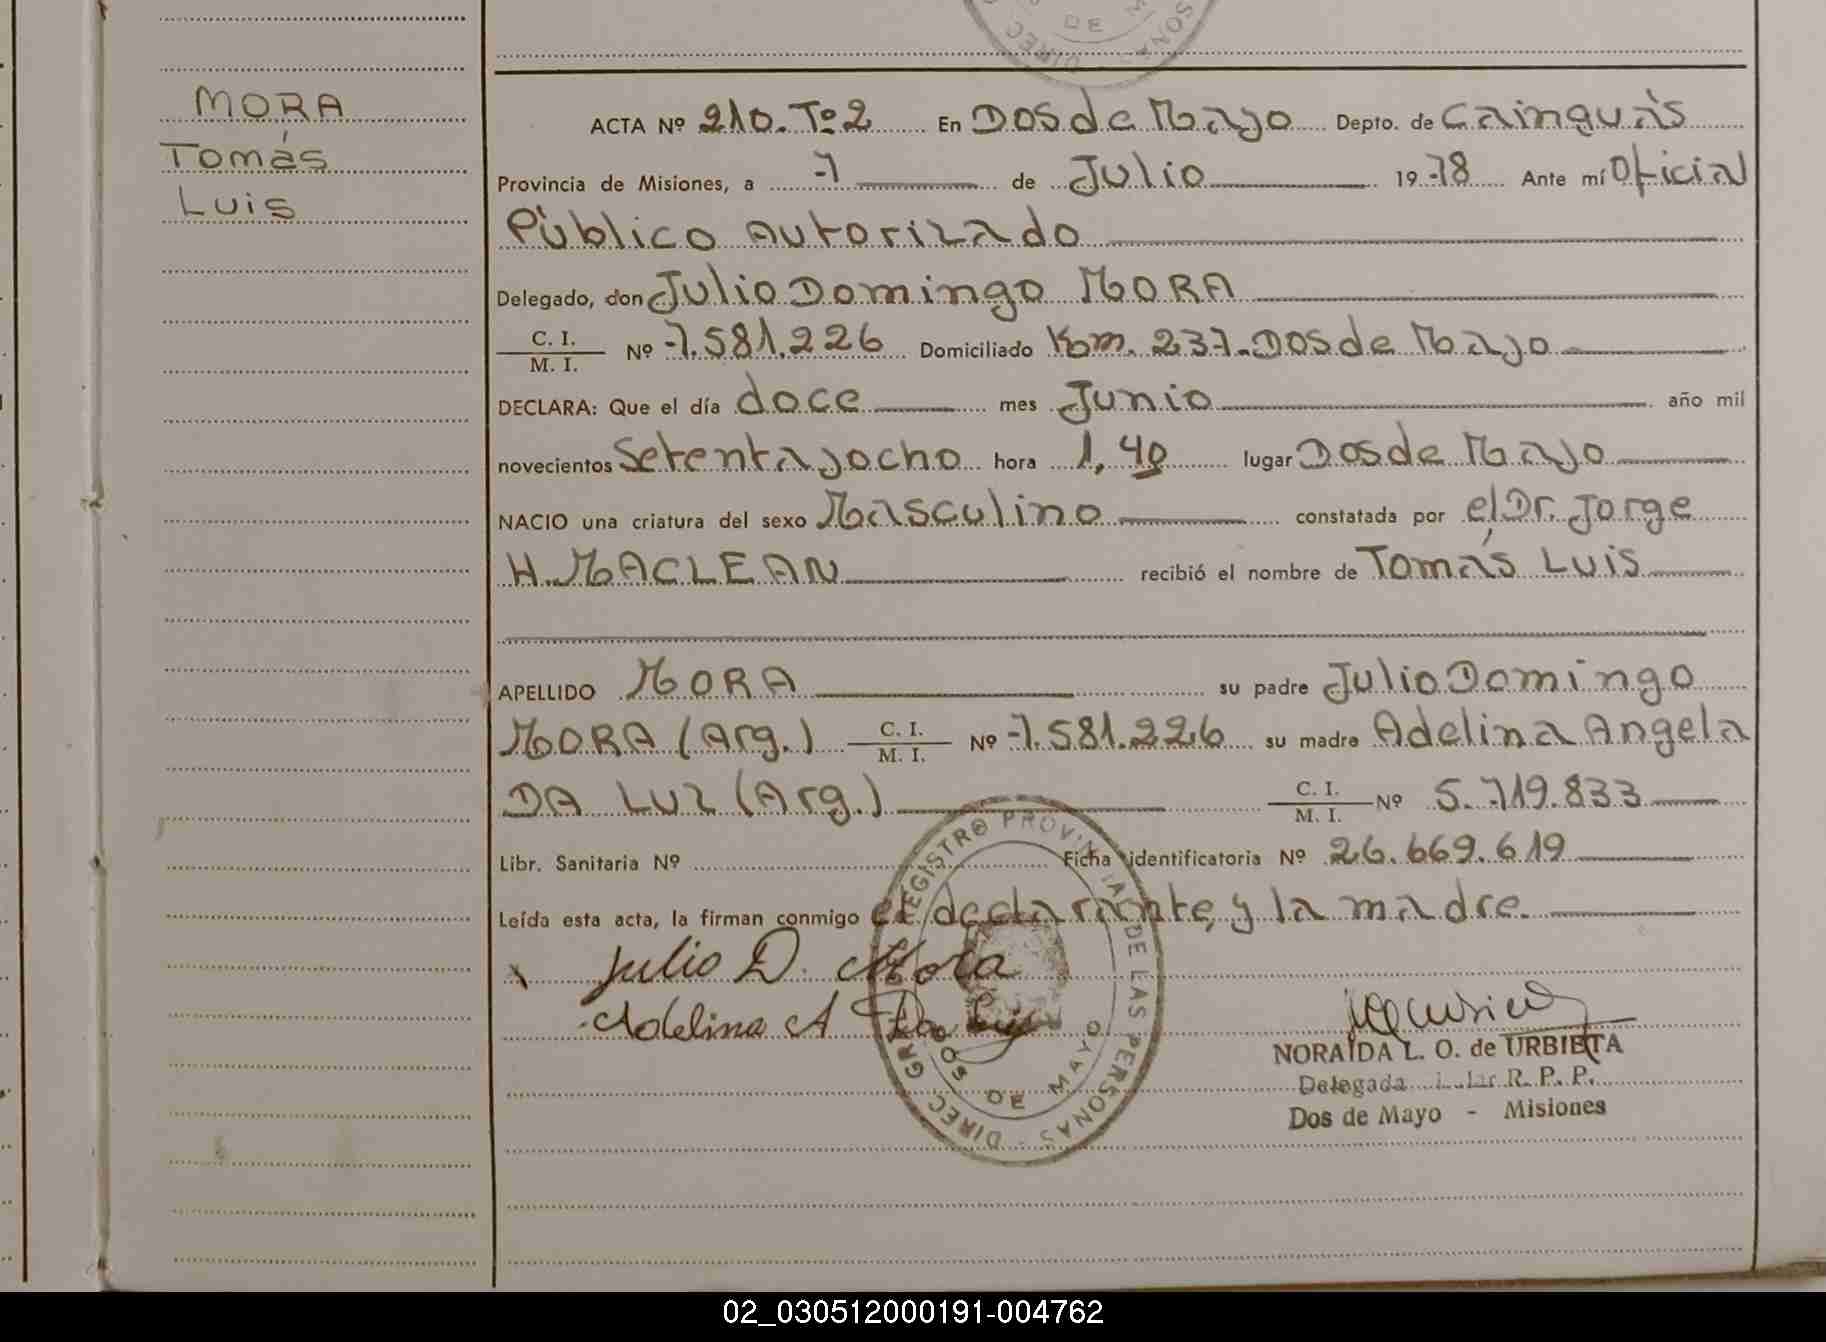 MORA
Tomás
Luis
ACTA Nº 210. Tº 2 En Dos de Mayo Depto. de Cainguás
Provincia de Misiones, a 7 de Julio 1978 Ante mí Oficial
Público Autorizado
Delegado, don Julio Domingo MORA
C. I.
M. I. Nº 7.581.226 Domiciliado Km. 237-Dos de Mayo
DECLARA: Que el día doce mes Junio año mil
novecientos Setenta y ocho hora 1,40 lugar Dos de Mayo
NACIO una criatura del sexo Masculino constatada por el Dr. Jorge
H. MACLEAN recibió el nombre de Tomás Luis
APELLIDO MORA su padre Julio Domingo
MORA (Arg.) C. I. M. I. Nº 7.581.226 su madre Adelina Angela
DA LUZ (Arg.) C. I. M. I. Nº 5.719.833
Libr. Sanitaria Nº Ficha identificatoria Nº 26.669.619
Leída esta acta, la firman conmigo el declarante, y la madre.
Julio D. Mora
Adelina A Da Luz
REGISTRO PROVINCIAL DE LAS PERSONAS - DIREC GRAL
DOS DE MAYO
NORAIDA L. O. de URBIETA
Delegada R. P. P.
Dos de Mayo - Misiones
02_030512000191-004762